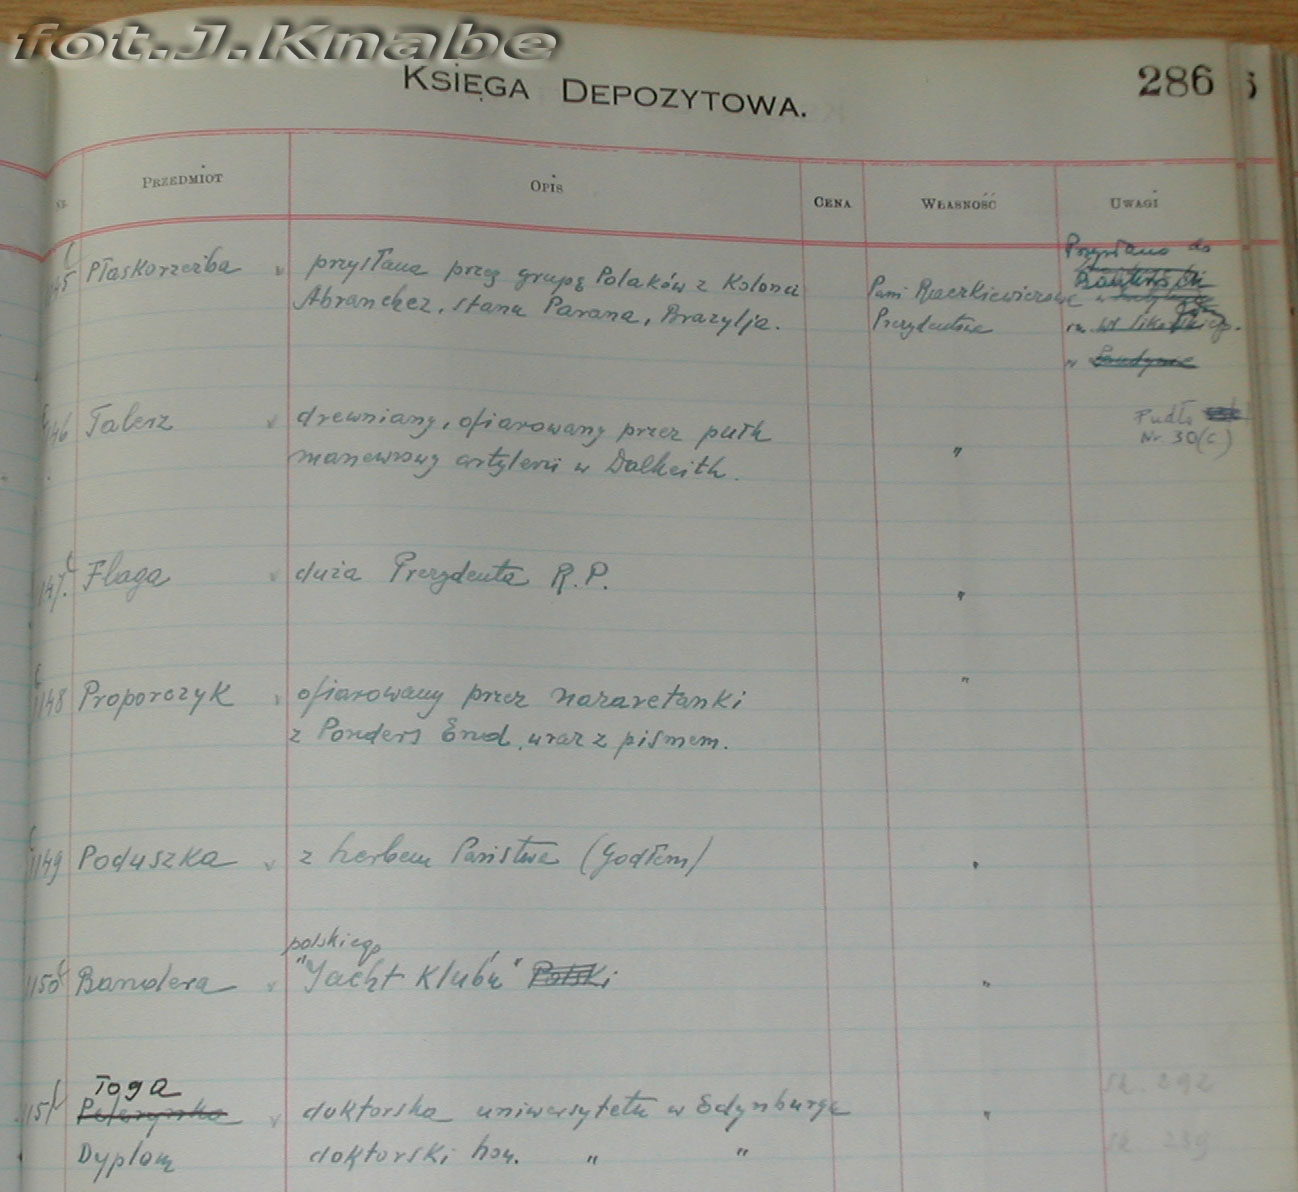 fot.J.Knabe
KSIĘGA DEPOZYTOWA.
286
NR. PRZEDMIOT OPIS CENA WŁASNOŚĆ UWAGI
45 Płaskorzeźba przysłana przez grupę Polaków z Kolonii
Abranchez, stanu Parana, Brazylja.
Pani Raczkiewiczowa
Prezydentowa
Przysłano do
w
im. Wł. Sikorskiego.
w Londynie
1146 Talerz drewniany, ofiarowany przez pułk
manewrowy artylerii w Dalkeith. "
Pudło
Nr. 30(c)
1147. Flaga duża Prezydenta R.P. "
1148 Proporczyk ofiarowany przez nazaretanki "
z Ponders End, wraz z pismem.
1149 Poduszka z herbem Państwa (Godłem) "
polskiego
1150 Bandera "Yacht Klubu" Polski "
Toga
1151 Pelerynka doktorska uniwersytetu w Edynburgu "
Dyplom doktorski hon. " "
sk 292
sk 239